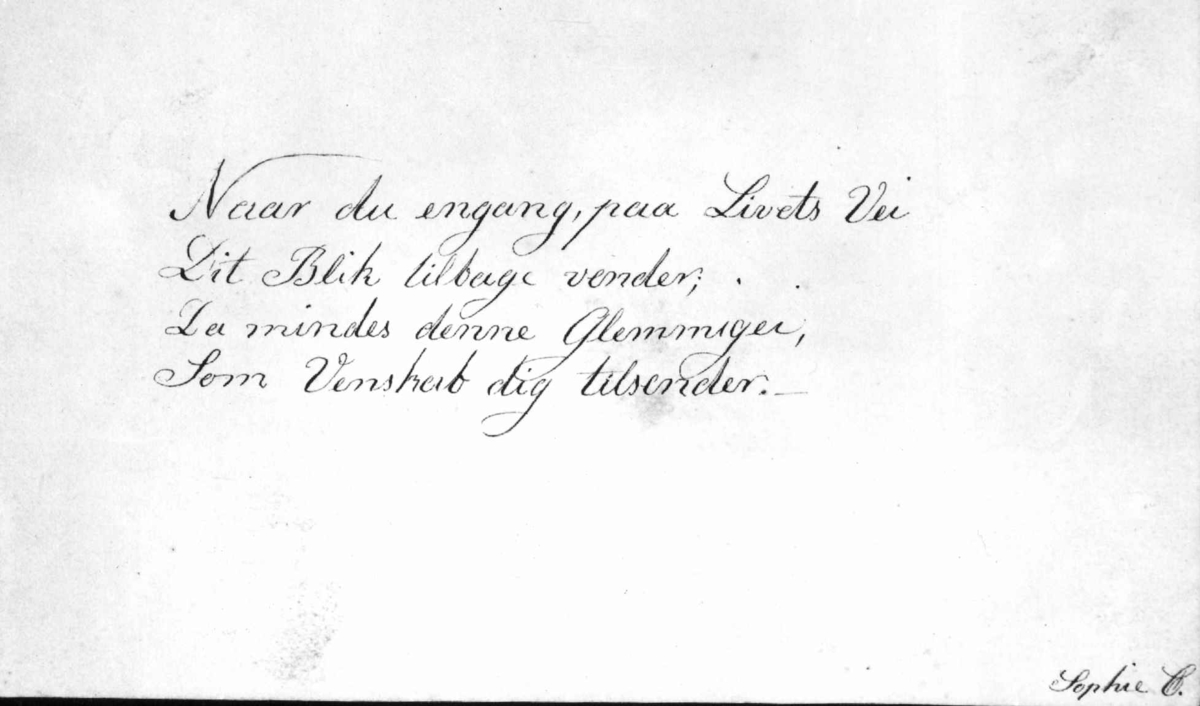 Naar du engang, paa Livets Vei
Dit Blik tilbage vender;
Da mindes denne Glemmigei,
Som Venskab dig tilsender.—
Sophie C.